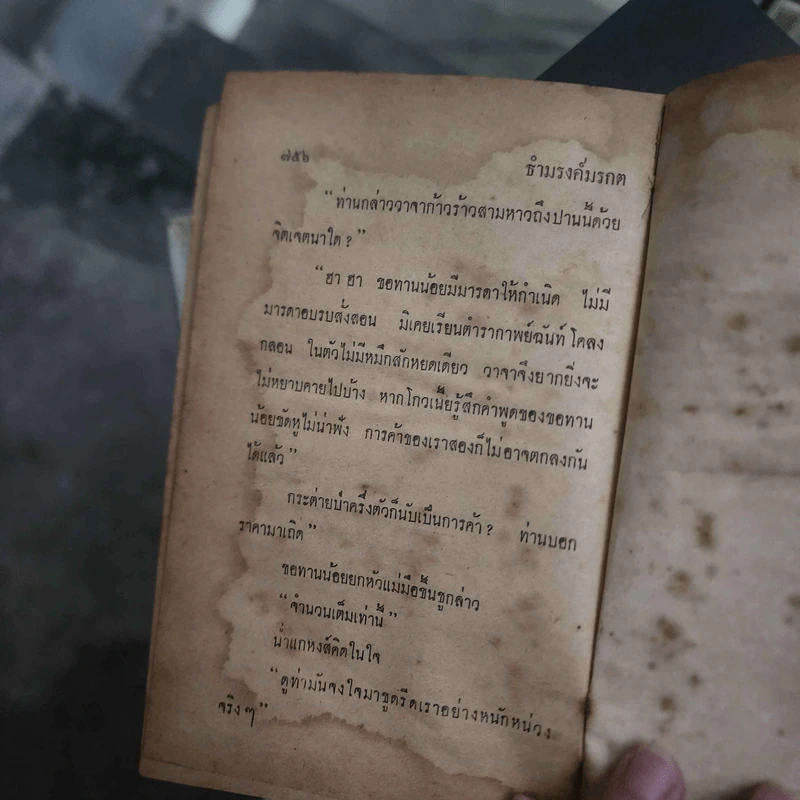 ๗๕๖
ธำมรงค์มรกต
“ท่านกล่าววาจาก้าวร้าวสามหาวถึงปานนี้ด้วย
จิตเจตนาใด ? ”
“ฮา ฮา ขอทานน้อยมีมารดาให้กำเนิด ไม่มี
มารดาอบรบสั่งสอน มิเคยเรียนตำรากาพย์ฉันท์ โคลง
กลอน ในตัวไม่มีหมึกสักหยดเดียว วาจาจึงยากยิ่งจะ
ไม่หยาบคายไปบ้าง หากโกวเนี้ยรู้สึกคำพูดของขอทาน
น้อยขัดหูไม่น่าฟัง การค้าของเราสองก็ไม่อาจตกลงกัน
ได้แล้ว”
กระต่ายป่าครึ่งตัวก็นับเป็นการค้า ? ท่านบอก
ราคามาเถิด”
ขอทานน้อยยกหัวแม่มือขึ้นชูกล่าว
“จำนวนเต็มเท่านี้”
น่ำแกหงส์คิดในใจ
“ดูท่ามันจงใจมาขูดรีดเราอย่างหนักหน่วง
จริง ๆ”